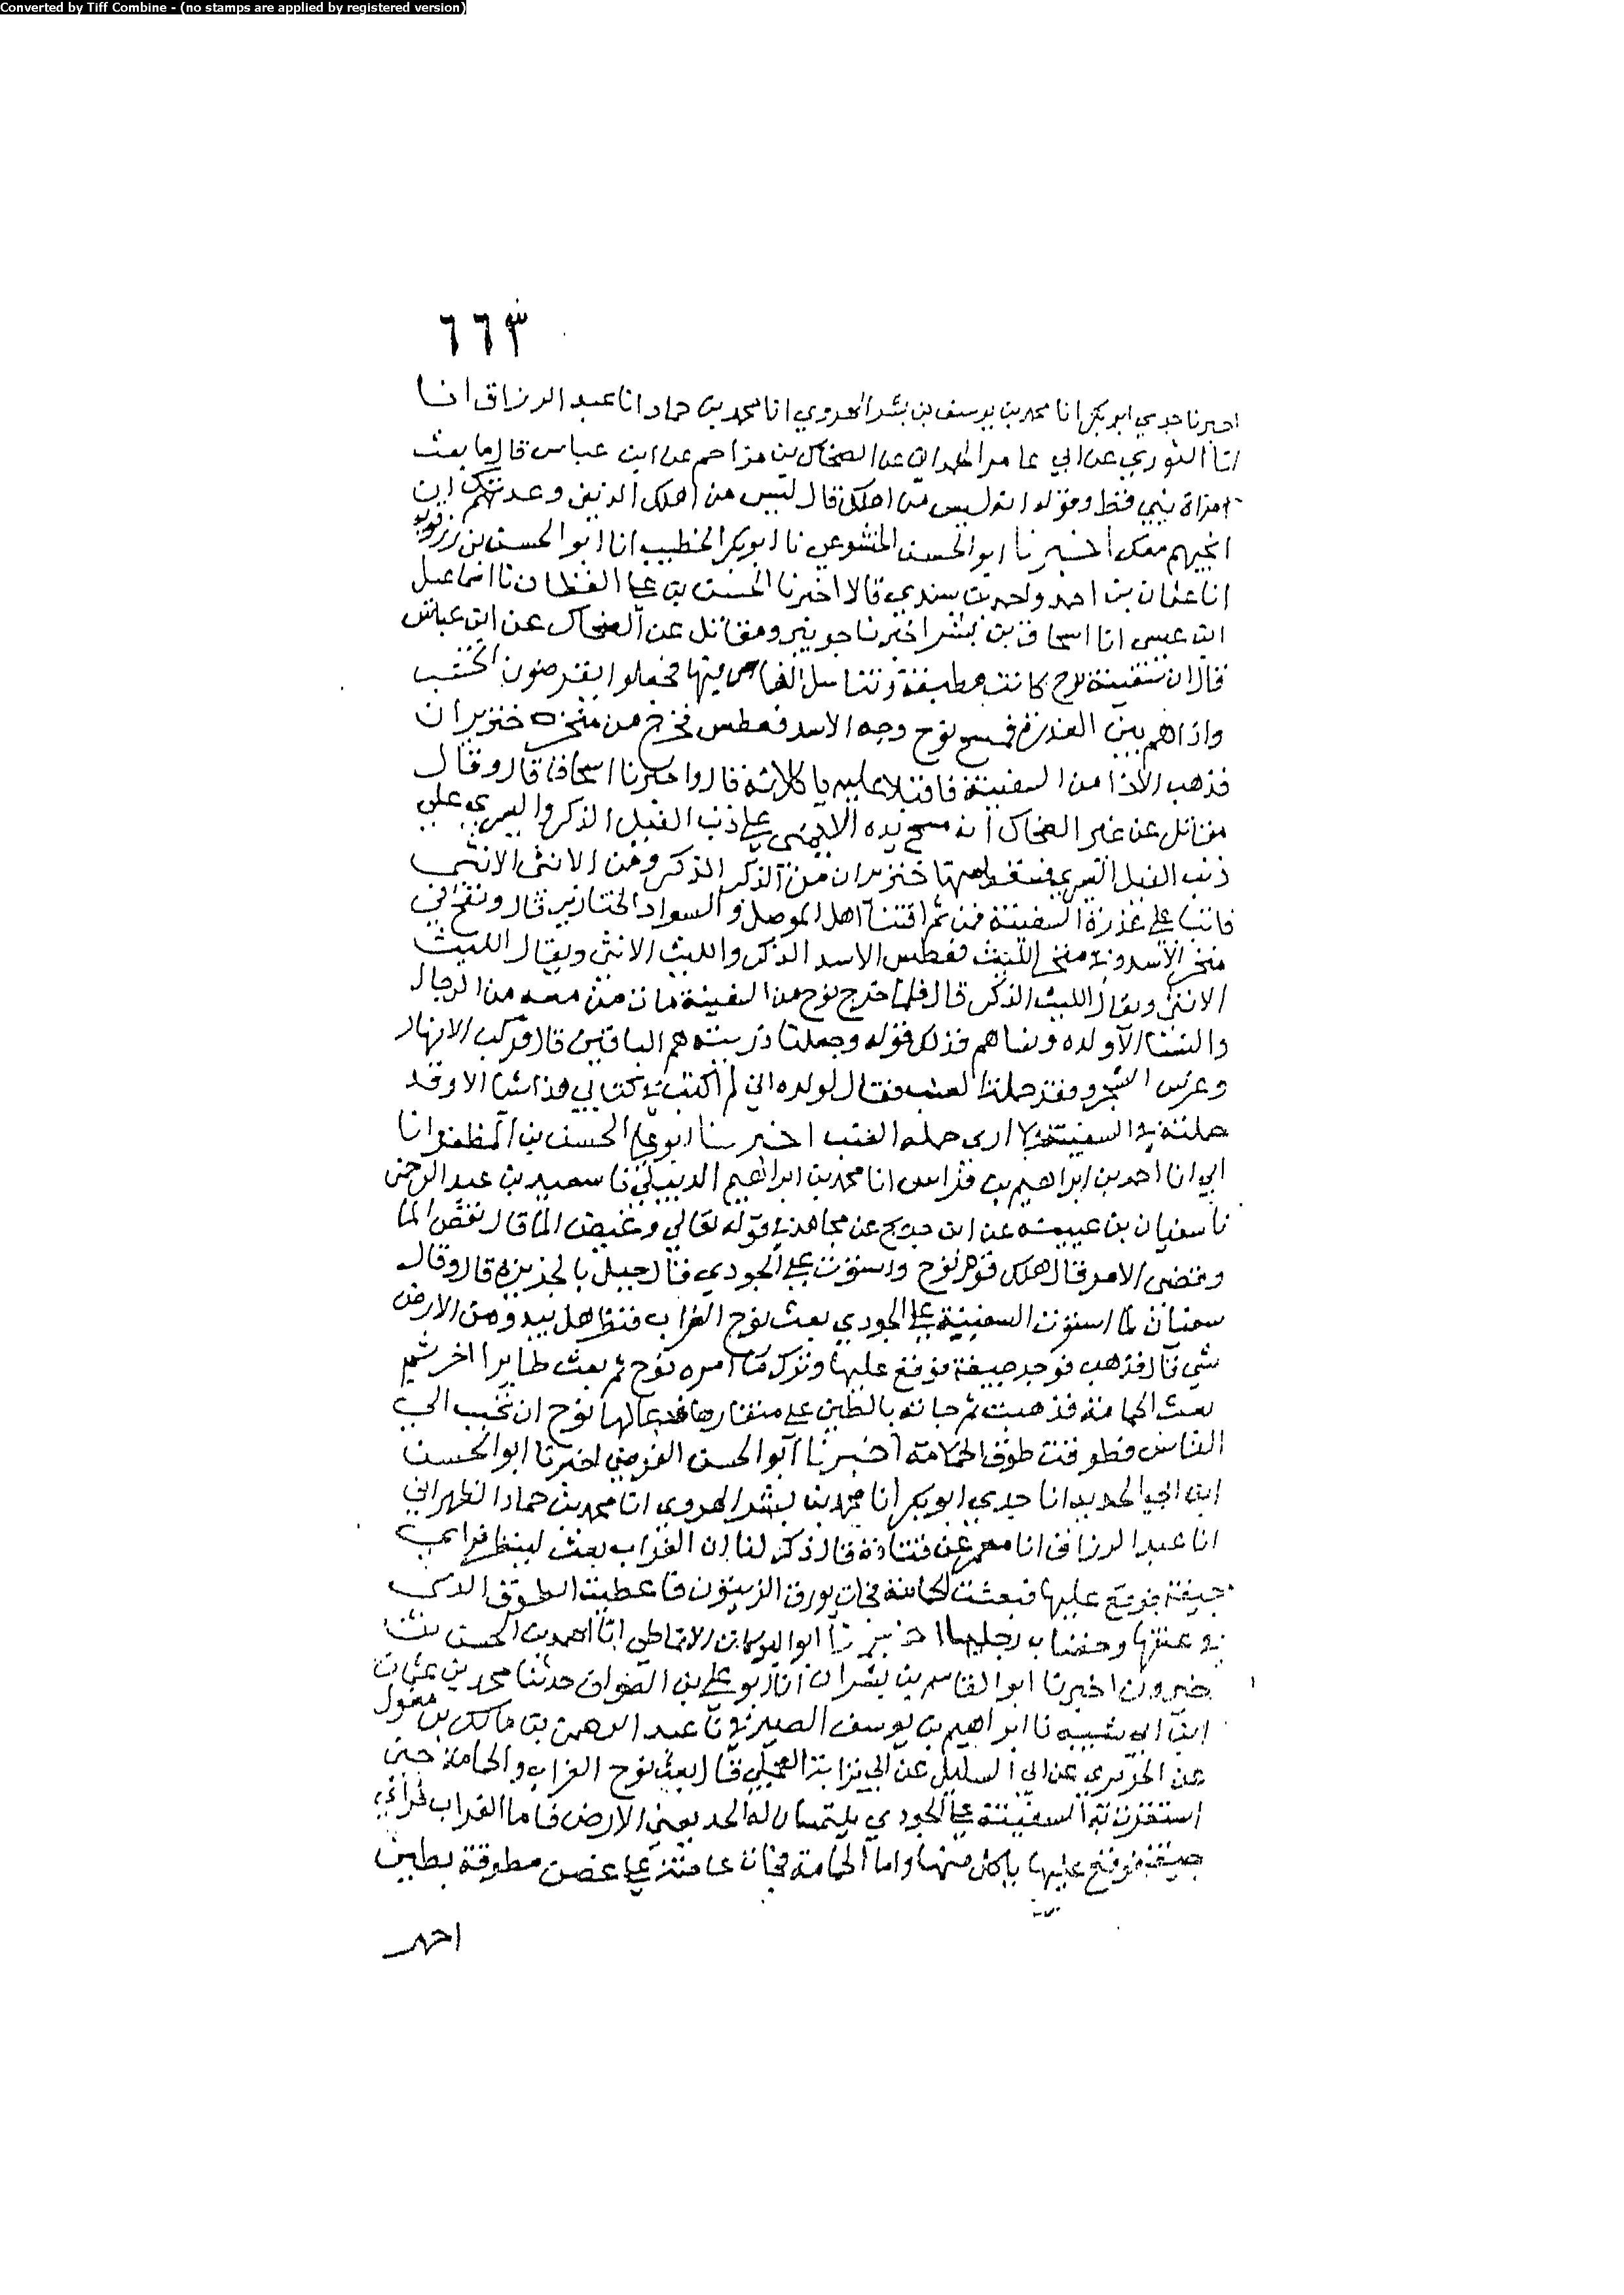 Converted by Tiff Combine - (no stamps are applied by registered version)
٦٦٣
اخبرنا جدي ابو بكر انا محمد بن يوسف بن بشر الهروي انا محمد بن حماد انا عبد الرزاق انا
انا الثوري عن ابي عامر الهمداني عن الضحاك بن مزاحم عن ابن عباس قال ما بغت
امراة نبي قط وقوله انه ليس من اهلك قال ليس من اهلك الذين وعدتك ان
انجيهم معك اخبرنا ابو الحسن الخشوعي نا ابو بكر الخطيب انا ابو الحسن بن رزقويه
انا عثمان بن احمد واحمد بن سندي قالا اخبرنا الحسن بن علي القطان نا اسماعيل
ابن عيسى انا اسحاق بن بشر اخبرنا جويبر ومقاتل عن الضحاك عن ابن عباس
قال ان سفينة نوح كانت مطبقة وتناسل الفار فيها فجعلوا يقرضون الخشب
واذاهم بين العذرة فمسح نوح وجه الاسد فعطس فخرج من منخره خنزيران
فذهب الاذا من السفينة فاقبلا عليه ياكلانه قال واخبرنا اسحاق قال وقال
مقاتل عن غير الضحاك انه مسح يده اليمنى على ذنب الفيل الذكر واليسرى على
ذنب الفيل اليسرى فسقط منها خنزيران من الذكر الذكر ومن الانثى الانثى
فاتيا على عذرة السفينة فمن ثم اقتنا اهل الموصل والسواد الخنازير قال ونفخ في
منخر الاسد وفي منخر الليث فعطس الاسد الذكر والليث الانثى ويقال الليث
الانثى ويقال الليث الذكر قال فلما خرج نوح من السفينة مات من معه من الرجال
والنسا الا ولده ونساهم فذلك قوله وجعلنا ذريته هم الباقين قال وركب الانهار
وغرس الشجر وفقد حملة العنب فقال لولده اني لم اكتب في كتابي هذا شيا الا وقد
حملته في السفينة ولا ارى حمله العنب اخبرنا ابو علي الحسن بن المظفر انا
ابي انا احمد بن ابراهيم بن فراس انا محمد بن ابراهيم الديبلي نا سعيد بن عبد الرحمن
نا سفيان بن عيينه عن ابن جريج عن مجاهد في قوله تعالى وغيض الما قال نقص الما
وقضى الامر قال هلك قوم نوح واستوت على الجودي قال جبل بالجزيرة قال وقال
سفيان لما استوت السفينة على الجودي بعث نوح الغراب فنظر هل يبدو من الارض
شي قال فذهب فوجد جيفة فوقع عليها وترك ما امره نوح ثم بعث طايرا اخر ثم
بعث الحمامة فذهبت ثم جاته بالطين على منقارها فدعا لها نوح ان تحبب الى
الناس فطوقت طوق الحمامة اخبرنا ابو الحسن الفرضي اخبرنا ابو الحسن
ابن ابي الحديد انا جدي ابو بكر انا محمد بن بشر الهروي انا محمد بن حماد الطهراني
انا عبد الرزاق انا معمر عن قتادة قال ذكر لنا ان الغراب بعث لينظر فراى
جيفة فوقع عليها فبعثت الحمامة فجات بورق الزيتون فاعطيت الطوق الذي
في عنقها وخضاب رجليها اخبرنا ابو البركات الانماطي انا احمد بن الحسن بن
خيرون اخبرنا ابو القاسم بن بشران انا ابو علي بن الصواف حدثنا محمد بن عثمان
ابن ابي شيبه نا ابراهيم بن يوسف الصيرفي نا عبد الرحمن بن مالك بن مغول
عن الجريري عن ابي السليل عن ابي العجلي قال بعث نوح الغراب والحمامة حين
استقرت به السفينة على الجودي يلتمسان له الحد يعني الارض فاما الغراب فراى
جيفة فوقع عليها ياكل منها واما الحمامة فجات عاضة على غصن مطوقة بطين
احمر